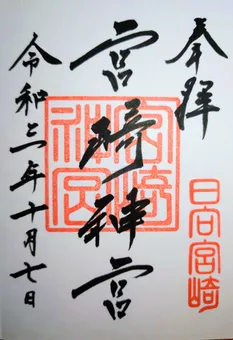 奉拝
日向宮崎
宮崎神宮
令和三年十月七日